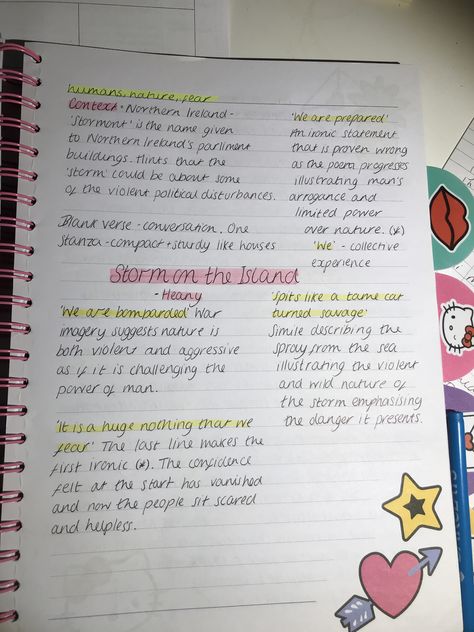 humans, nature, fear
Context - Northern Ireland -
'Stormont' is the name given
to Northern Ireland's parliment
buildings. Hints that the
'storm' could be about some
of the violent political disturbances.
Blank verse - conversation. One
Stanza - compact + sturdy like houses
'We are prepared'
An ironic statement
that is proven wrong
as the poem progresses
illustrating man's
arrogance and
limited power
over nature. (*)
'We' - collective
experience
Storm on the Island
- Heany
'We are bombarded' War
imagery suggests nature is
both violent and aggressive
as if it is challenging the
power of man.
'It is a huge nothing that we
fear' The last line makes the
first ironic (*). The confidence
felt at the start has vanished
and now the people sit scared
and helpless.
'spits like a tame cat
turned savage'
Simile describing the
spray from the sea
illustrating the violent
and wild nature of
the storm emphasising
the danger it presents.